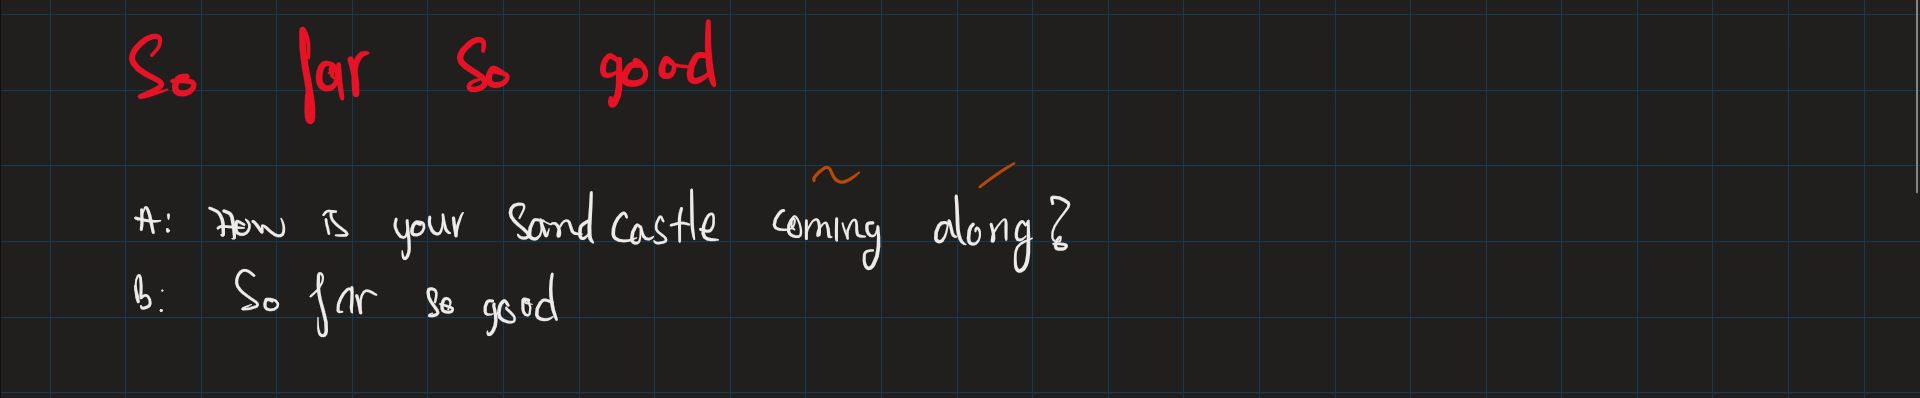 So far so good
A: How is your Sand castle coming along?
B: So far so good